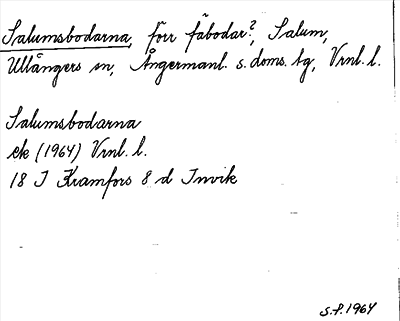 Salumsbodarna, förr fäbodar?, Salum,
Ullångers sn, Ångermanl. s. doms. tg, Vrnl. l.
Salumsbodarna
ek (1964) Vrnl. l.
18 J Kramfors 8 d Invik
S.F. 1964